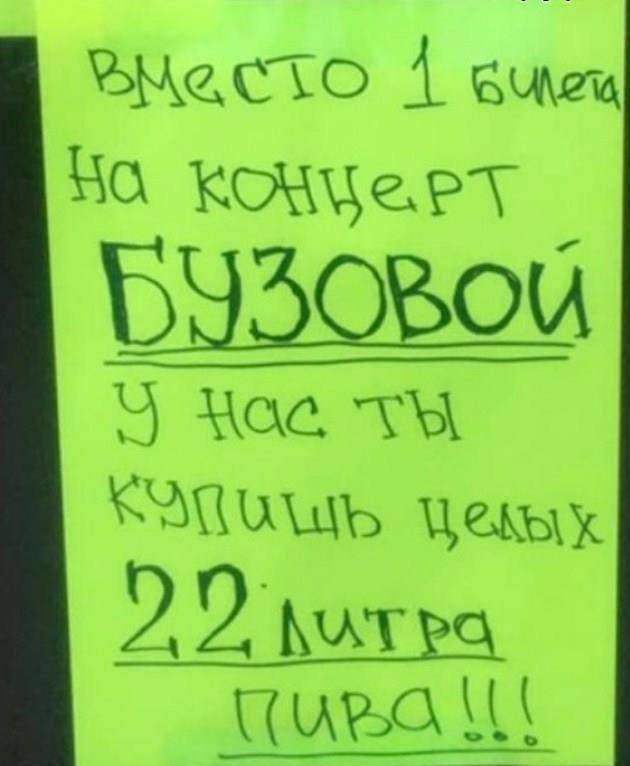 Вместо 1 билета
на концерт
БУЗОВОЙ
у нас ты
купишь целых
22 литра
пива!!!